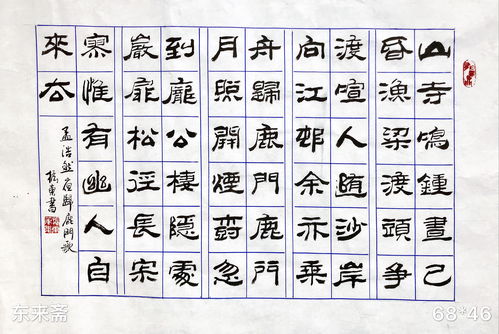 山寺鳴鍾晝已
昏漁梁渡頭爭
渡喧人随沙岸
向江邨余亦乘
舟歸鹿門鹿門
月照開煙樹忽
到龐公棲隱處
巖扉松徑長寂
寥惟有幽人自
來去
孟浩然夜歸鹿門歌
書
东来斋
68*46